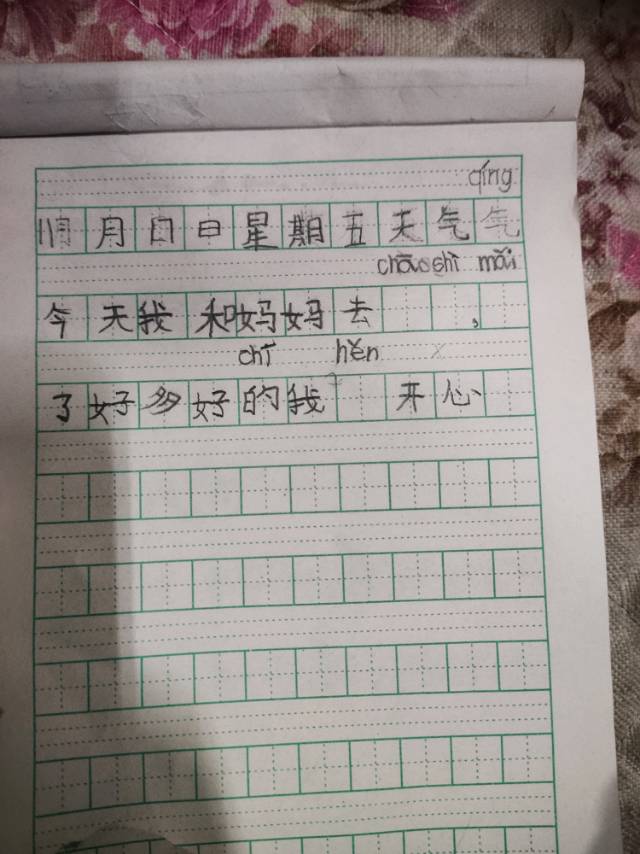 qíng
11月 月 日 日 星 期 五 天 气
chāo shì mǎi
今 天 我 和 妈 妈 去 ，
chī hěn
了 好 多 好 的 我 开 心 、